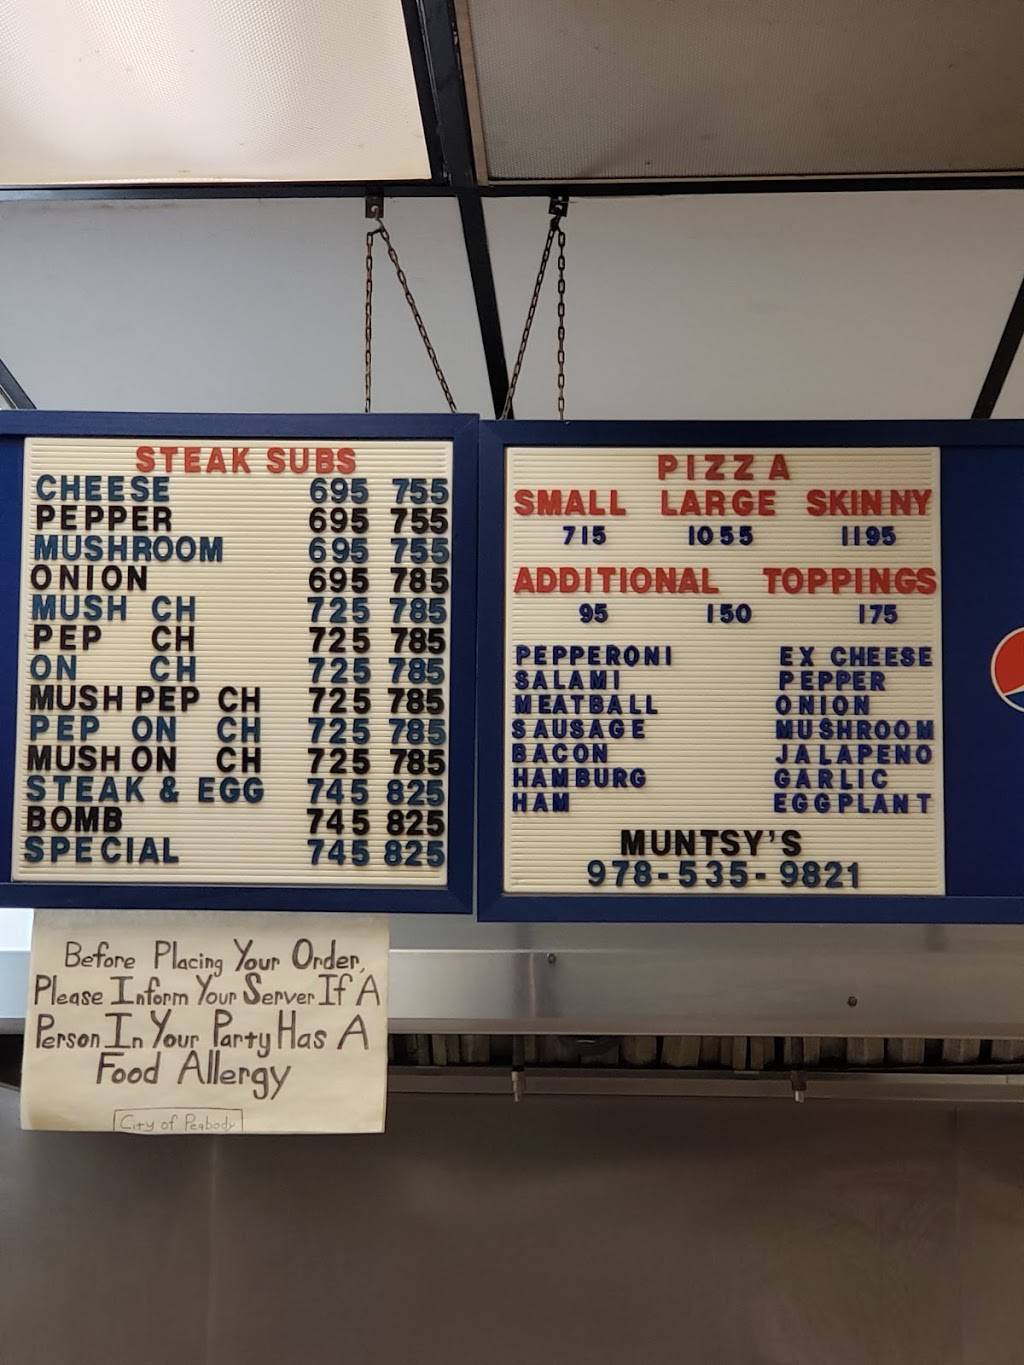 STEAK SUBS
CHEESE 695 755
PEPPER 695 755
MUSHROOM 695 755
ONION 695 785
MUSH CH 725 785
PEP CH 725 785
ON CH 725 785
MUSH PEP CH 725 785
PEP ON CH 725 785
MUSH ON CH 725 785
STEAK & EGG 745 825
BOMB 745 825
SPECIAL 745 825
PIZZA
SMALL LARGE SKINNY
715 1055 1195
ADDITIONAL TOPPINGS
95 150 175
PEPPERONI EX CHEESE
SALAMI PEPPER
MEATBALL ONION
SAUSAGE MUSHROOM
BACON JALAPENO
HAMBURG GARLIC
HAM EGGPLANT
MUNTSY'S
978-535-9821
Before Placing Your Order,
Please Inform Your Server If A
Person In Your Party Has A
Food Allergy
City of Peabody